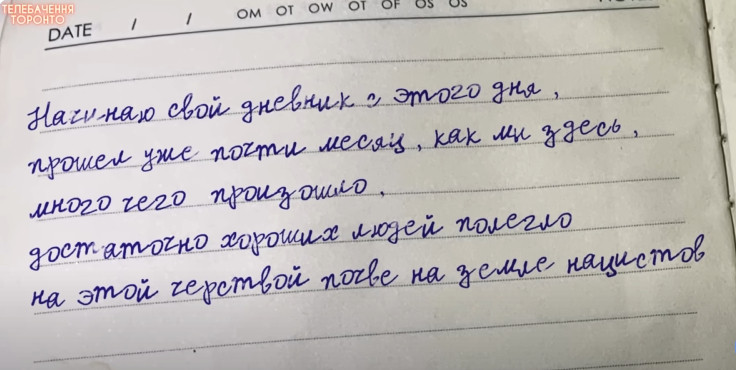 ТЕЛЕБАЧЕННЯ
ТОРОНТО
DATE / / ОМ ОТ OW ОТ OF OS OS
Начинаю свой дневник с этого дня,
прошел уже почти месяц, как ми здесь,
много чего произошло.
достаточно хороших людей полегло
на этой черствой почве на земле нацистов